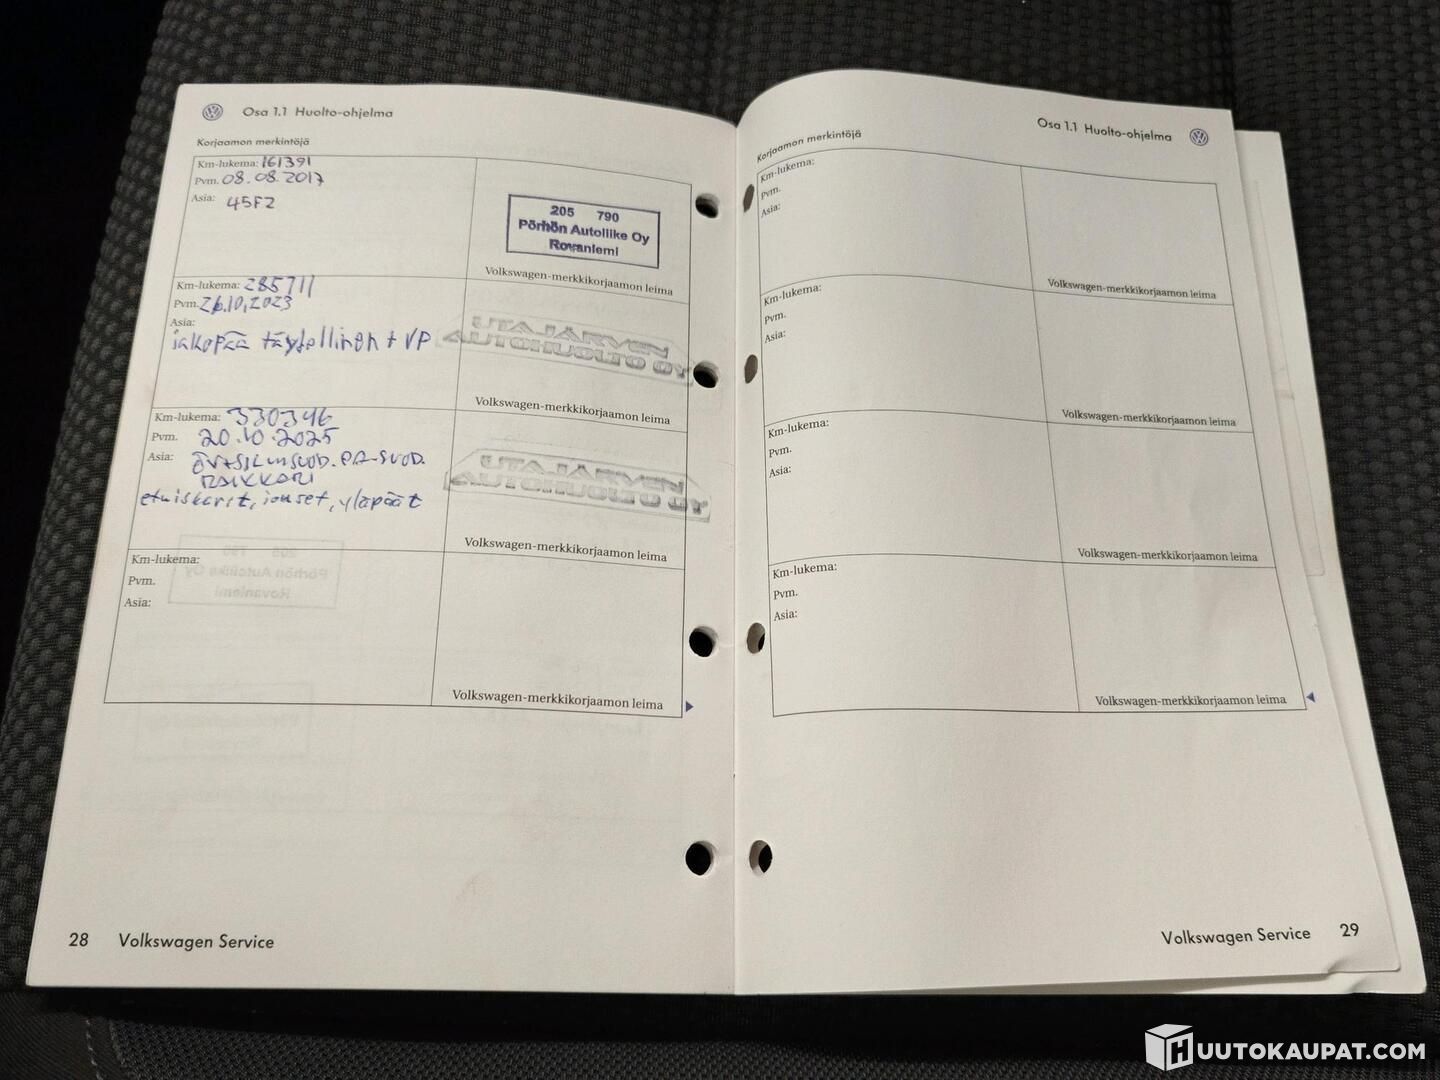 Osa 1.1 Huolto-ohjelma
Korjaamon merkintöjä
Km-lukema: 161391
Pvm. 08.08.2017
Asia: 45F2
205 790
Pörhön Autoliike Oy
Rovaniemi
Volkswagen-merkkikorjaamon leima
Km-lukema: 285711
Pvm. 26.10.2023
Asia:
jakopää täydellinen + VP
UTAJÄRVEN
AUTOHUOLTO OY
Volkswagen-merkkikorjaamon leima
Km-lukema: 330346
Pvm. 20.10.2025
Asia:
etuiskarit, jouset, yläpäät
UTAJÄRVEN
AUTOHUOLTO OY
Volkswagen-merkkikorjaamon leima
Km-lukema:
Pvm.
Asia:
Volkswagen-merkkikorjaamon leima
28 Volkswagen Service
Osa 1.1 Huolto-ohjelma
Korjaamon merkintöjä
Km-lukema:
Pvm.
Asia:
Volkswagen-merkkikorjaamon leima
Km-lukema:
Pvm.
Asia:
Volkswagen-merkkikorjaamon leima
Km-lukema:
Pvm.
Asia:
Volkswagen-merkkikorjaamon leima
Km-lukema:
Pvm.
Asia:
Volkswagen-merkkikorjaamon leima
Volkswagen Service 29
HUUTOKAUPAT.COM